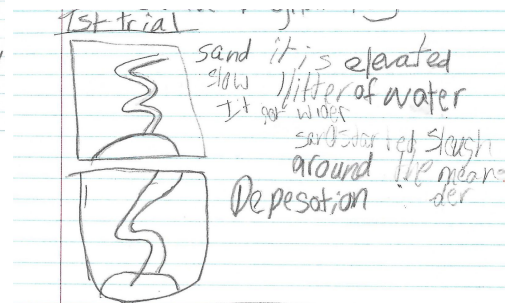 1st trial
sand it is elevated
slow 1 litter of water
It got wider
sand started slough
around the mean
der
Depesation